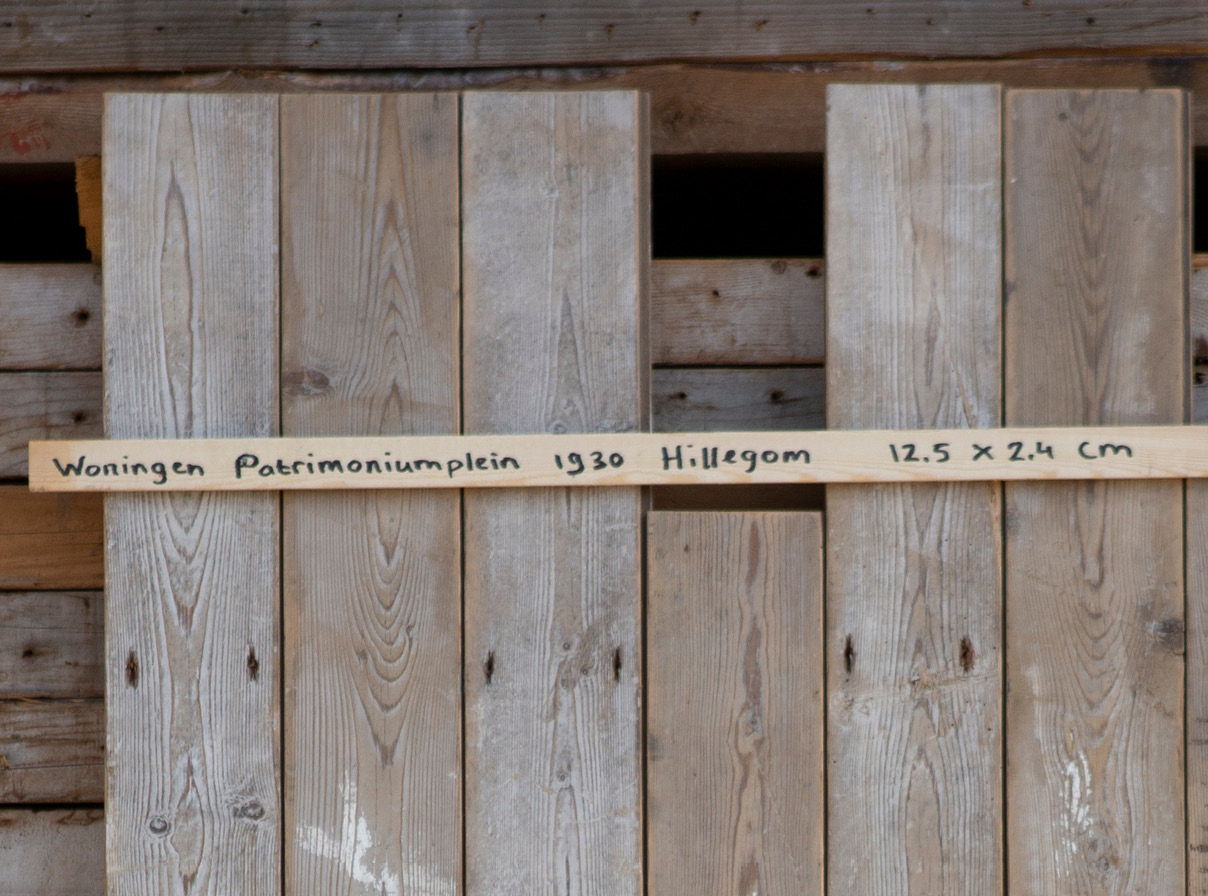 Woningen Patrimoniumplein 1930 Hillegom 12.5 x 2.4 cm